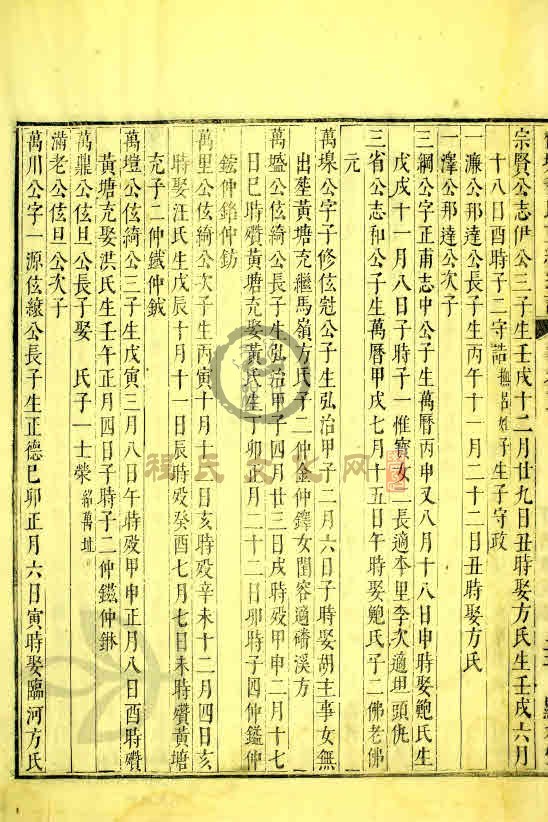 宗賢公志伊公三子生壬戌十二月廿九日丑時娶方氏生壬戌六月
十八日酉時子二守誥撫呂姓子生子守政
一濂公邦達公長子生丙午十一月二十二日丑時娶方氏
一澤公邦達公次子
三綱公字正甫志中公子生萬曆丙申又八月十八日申時娶鮑氏生
戊戌十一月八日子時子一惟寳女二長適本里李次適坦頭仇
三省公志和公子生萬曆甲戌七月十五日午時娶鮑氏子二佛老佛
元
萬埠公字子修伭兟公子生弘治甲子二月六日子時娶胡主事女無
出塟黃塘充繼馬嶺方氏子二仲金仲鐸女閏容適磻溪方
萬盛公伭綺公長子生弘治甲子四月廿三日戌時殁甲申二月十七
日巳時殯黃塘充娶黃氏生丁卯正月二十二日卯時子四仲鎰仲
鉉仲銘仲鈁
萬里公伭綺公次子生丙寅十月十一日亥時殁辛未十二月四日亥
時娶汪氏生戊辰十月十一日辰時殁癸酉七月七日未時殯黃塘
充子二仲鐵仲鉞
萬塏公伭綺公三子生戊寅三月八日午時殁甲申正月八日酉時殯
黃塘充娶洪氏生壬午正月四日子時子二仲鎡仲鉌
萬鼎公伭旦公長子娶 氏子一士榮紹萬址
滿老公伭旦公次子
萬川公字一源伭線公長子生正德己卯正月六日寅時娶臨河方氏
程氏文化网